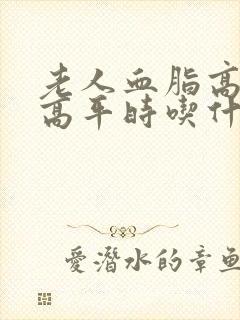 老人血脂高
高平时喫什
愛潛水的章魚